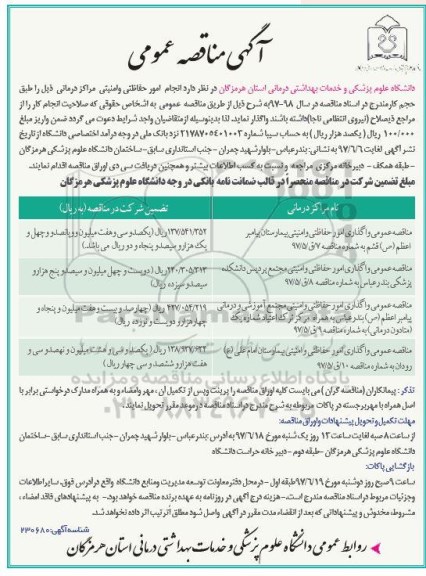 آگهی مناقصه عمومی
دانشگاه علوم پزشکی و خدمات بهداشتی درمانی استان هرمزگان در نظر دارد انجام امور حفاظتی وامنیتی مراکز درمانی ذیل را طبق
حجم کار مندرج در اسناد مناقصه در سال ۹۸-۹۷ به شرح ذیل از طریق مناقصه عمومی به اشخاص حقوقی که صلاحیت انجام کار را از
مراجع ذیصلاح (نیروی انتظامی ناجا) داشته باشند واگذار نماید. لذا بدینوسیله از متقاضیان واجد شرایط دعوت می گردد ضمن واریز مبلغ
۱۰۰/۰۰۰ ریال (یکصد هزار ریال) به حساب سیبا شماره ۲۱۷۸۷۰۵۴۰۱۰۰۲ نزد بانک ملی در وجه درآمد اختصاصی دانشگاه از تاریخ
نشر آگهی لغایت ۹۷/۶/۶ به نشانی: بندرعباس-بلوار شهید چمران -جنب استانداری سابق-ساختمان دانشگاه علوم پزشکی هرمزگان
-طبقه همکف - دبیرخانه مرکزی مراجعه و نسبت به کسب اطلاعات بیشتر و همچنین دریافت سی دی اوراق مناقصه اقدام نمایند.
مبلغ تضمین شرکت در مناقصه منحصراً در قالب ضمانت نامه بانکی در وجه دانشگاه علوم پزشکی هرمزگان
نام مراکز درمانی
تضمین شرکت در مناقصه (به ریال)
مناقصه عمومی واگذاری امور حفاظتی وامنیتی بیمارستان پیامبر
اعظم (ص) قشم به شماره مناقصه ۷/ق/۹۷/۵
۱۳۷/۵۴۱/۳۵۲ ریال (یکصد و سی وهفت میلیون و پانصد و چهل و
یک هزار و سیصد و پنجاه و دو ریال می باشد.)
مناقصه عمومی واگذاری امور حفاظتی وامنیتی مجتمع پردیس دانشکده
پزشکی بندرعباس به شماره مناقصه ۸/ق/۹۷/۵
۲۳۰/۳۰۵/۳۱۳ ریال (دویست و سی میلیون و سیصد و پنج هزار و
سیصد و سیزده ریال)
مناقصه عمومی واگذاری امور حفاظتی وامنیتی مجتمع آموزشی و درمانی
پیامبر اعظم (ص) بندرعباس به همراه مرکز ترک اعتیاد شماره یک
(متادون درمانی) به شماره مناقصه ۹/ق/۹۷/۵
۴۲۷/۰۵۴/۲۱۹ ریال (چهارصد و بیست و هفت میلیون و پنجاه و
چهار هزار و دویست و نوزده ریال)
مناقصه عمومی واگذاری امور حفاظتی وامنیتی بیمارستان امام علی (ع)
رودان به شماره مناقصه ۱۰/ق/۹۷/۵
ریال (یکصد و سی و هشت میلیون و نهصد و سی و
هفت هزار و ششصد و سی چهار ریال)
تذکر: پیمانکاران (مناقصه گران) می بایست کلیه اوراق مناقصه را پرینت و پس از تکمیل آن ، مهر و امضاء و به همراه مدارک درخواستی برابر با
اصل همراه با مهر برجسته در پاکات مربوطه به شرح مندرج در اسناد مناقصه در موعد مقرر تحویل نمایند.
مهلت تکمیل و تحویل پیشنهادات و اوراق مناقصه:
از ساعت ۸ صبح لغایت ساعت ۱۳ روز یک شنبه مورخ ۹۷/۶/۱۸ به آدرس :بندرعباس-بلوار شهید چمران -جنب استانداری سابق -ساختمان
دانشگاه علوم پزشکی هرمزگان -طبقه دوم -دبیرخانه حراست دانشگاه
بازگشایی پاکات:
ساعت ۹ صبح روز دوشنبه مورخ ۹۷/۶/۱۹ طبقه اول - درمحل دفتر معاونت توسعه مدیریت و منابع دانشگاه واقع در آدرس فوق، سایر اطلاعات
وجزئیات مربوط در اسناد مناقصه مندرج است.- هزینه درج آگهی در روزنامه به عهده برنده مناقصه خواهد بود.- به پیشنهادهای فاقد امضاء ،
مشروط، مخدوش و پیشنهاداتی که بعد از انقضاء مدت مقرر در آگهی واصل شود مطلق أثر تیب اثر داده نخواهد شد.
شناسه آگهی: ۲۳۰۶۸۰
روابط عمومی دانشگاه علوم پزشکی و خدمات بهداشتی درمانی استان هرمزگان
پایگاه اطلاع رسانی مناقصه و مزایده